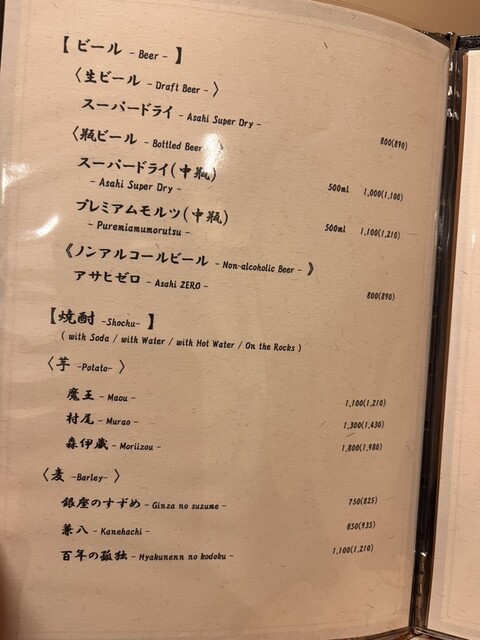 【 ビール - Beer - 】
〈生ビール - Draft Beer - 〉
スーパードライ - Asahi Super Dry -
800(890)
〈瓶ビール - Bottled Beer 〉
スーパードライ(中瓶)
- Asahi Super Dry -
500ml 1,000(1,100)
プレミアムモルツ(中瓶)
- Puremiamumorutsu -
500ml 1,100(1,210)
《ノンアルコールビール - Non-alcoholic Beer - 》
アサヒゼロ - Asahi ZERO -
800(890)
【焼酎 -Shochu- 】
( with Soda / with Water / with Hot Water / On the Rocks )
〈芋 -Potato- 〉
魔王 - Maou - 1,100(1,210)
村尾 - Murao - 1,300(1,430)
森伊蔵 - Moriizou - 1,800(1,980)
〈麦 -Barley- 〉
銀座のすずめ - Ginza no suzume - 750(825)
兼八 - Kanehachi - 850(935)
百年の孤独 - Hyakunenn no kodoku - 1,100(1,210)